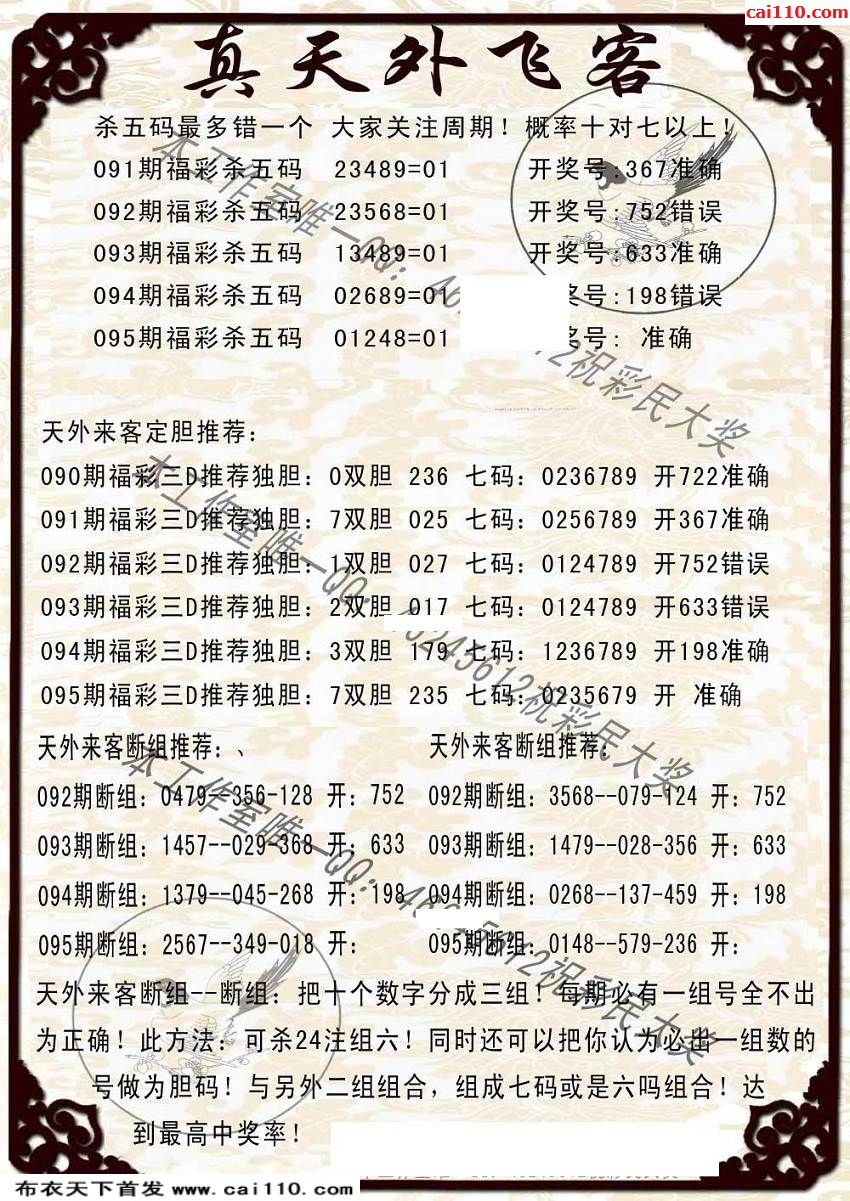 cai110.com
真天外飞客
杀五码最多错一个 大家关注周期！概率十对七以上！
091期福彩杀五码 23489=01 开奖号:367准确
092期福彩杀五码 23568=01 开奖号:752错误
093期福彩杀五码 13489=01 开奖号:633准确
094期福彩杀五码 02689=01 奖号:198错误
095期福彩杀五码 01248=01 奖号: 准确
天外来客定胆推荐：
090期福彩三D推荐独胆：0双胆 236 七码：0236789 开722准确
091期福彩三D推荐独胆：7双胆 025 七码：0256789 开367准确
092期福彩三D推荐独胆：1双胆 027 七码：0124789 开752错误
093期福彩三D推荐独胆：2双胆 017 七码：0124789 开633错误
094期福彩三D推荐独胆：3双胆 179 七码：1236789 开198准确
095期福彩三D推荐独胆：7双胆 235 七码：0235679 开 准确
天外来客断组推荐：、 天外来客断组推荐：
092期断组：0479--356-128 开：752 092期断组：3568--079-124 开：752
093期断组：1457--029-368 开：633 093期断组：1479--028-356 开：633
094期断组：1379--045-268 开：198 094期断组：0268--137-459 开：198
095期断组：2567--349-018 开： 095期断组：0148--579-236 开：
天外来客断组--断组：把十个数字分成三组！每期必有一组号全不出
为正确！此方法：可杀24注组六！同时还可以把你认为必出一组数的
号做为胆码！与另外二组组合，组成七码或是六吗组合！达
到最高中奖率！
布衣天下首发 www.cai110.com
本工作室唯一QQ：46 12祝彩民大奖
本工作室唯一QQ： 6245612祝彩民大奖
本工作室唯一QQ：46 5612祝彩民大奖